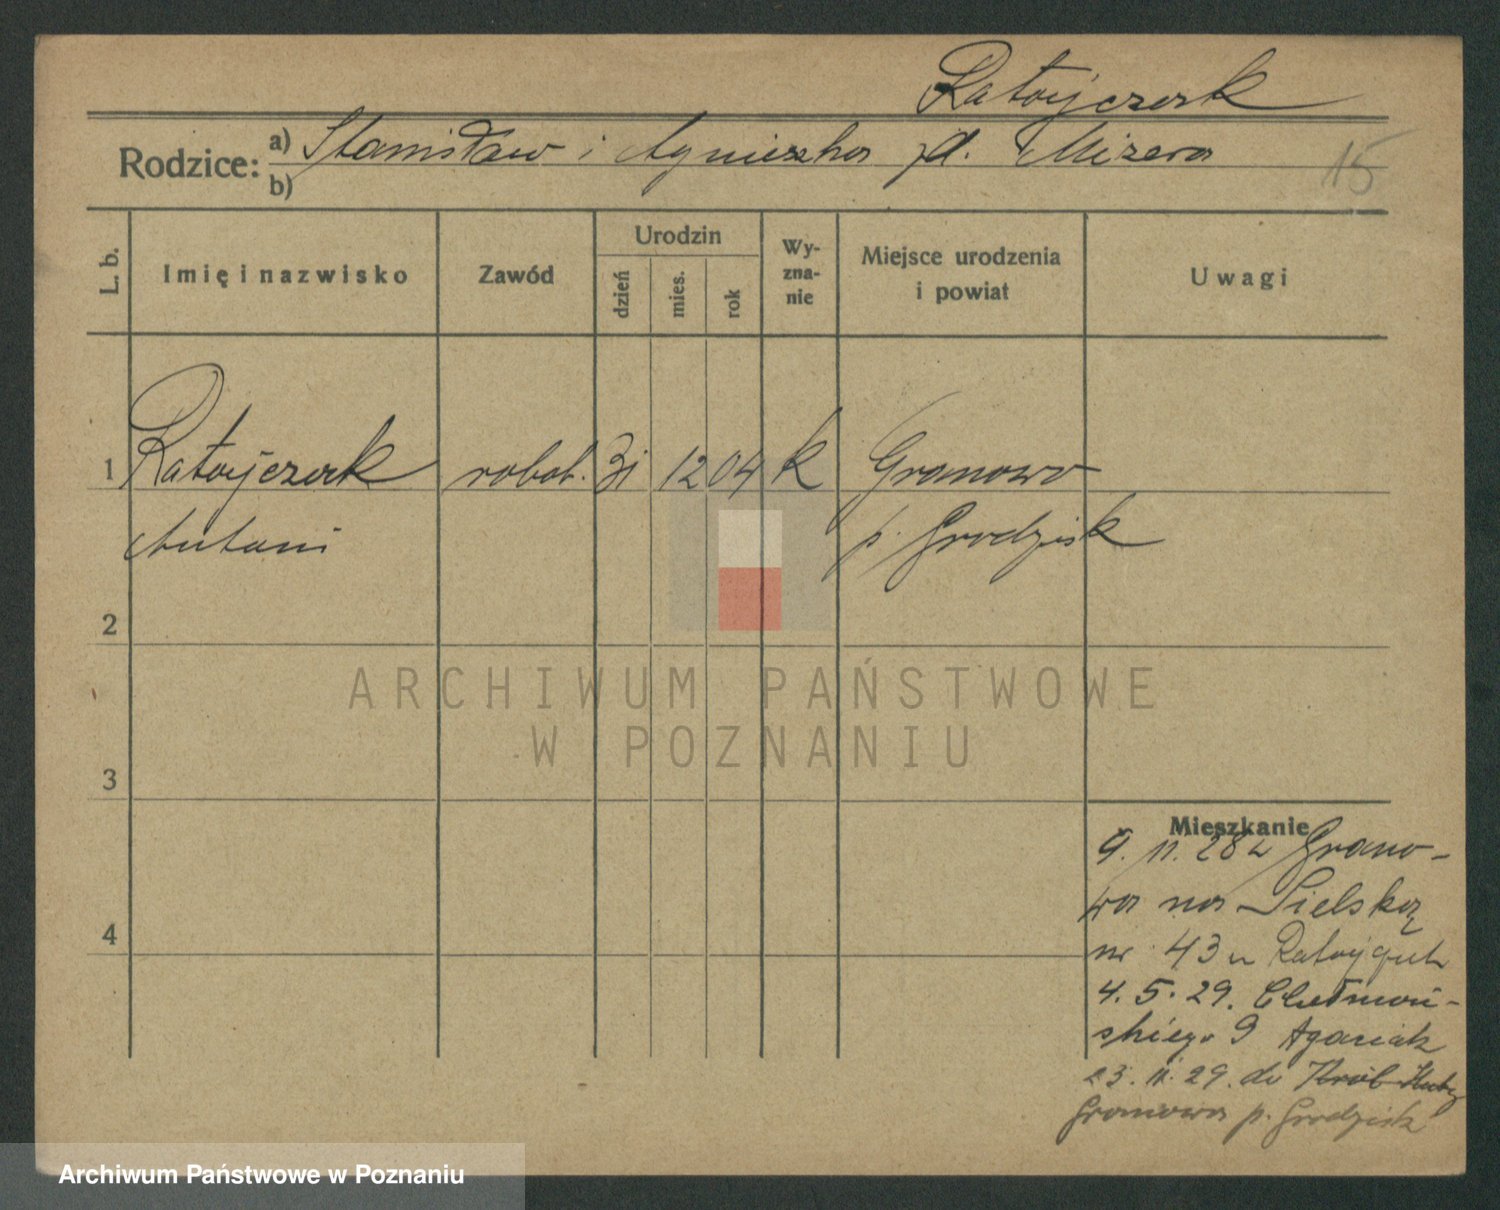 Ratajczak
Rodzice: a) Stanisław i Agnieszka zd. Mizera
b)
15
L. b.
Imię i nazwisko
Zawód
Urodzin
dzień
mies.
rok
Wy-
zna-
nie
Miejsce urodzenia
i powiat
Uwagi
1 Ratajczak robot. 31 12 04 k Granowo
Antoni p. Grodzisk
2
3
4
ARCHIWUM PAŃSTWOWE
W POZNANIU
Mieszkanie
9. 11. 28 z Grano-
wa na Sielską
nr 43 u
4. 5. 29. Chełmoń-
skiego 9
23. 11. 29. do
Granowa p. Grodzisk
Archiwum Państwowe w Poznaniu